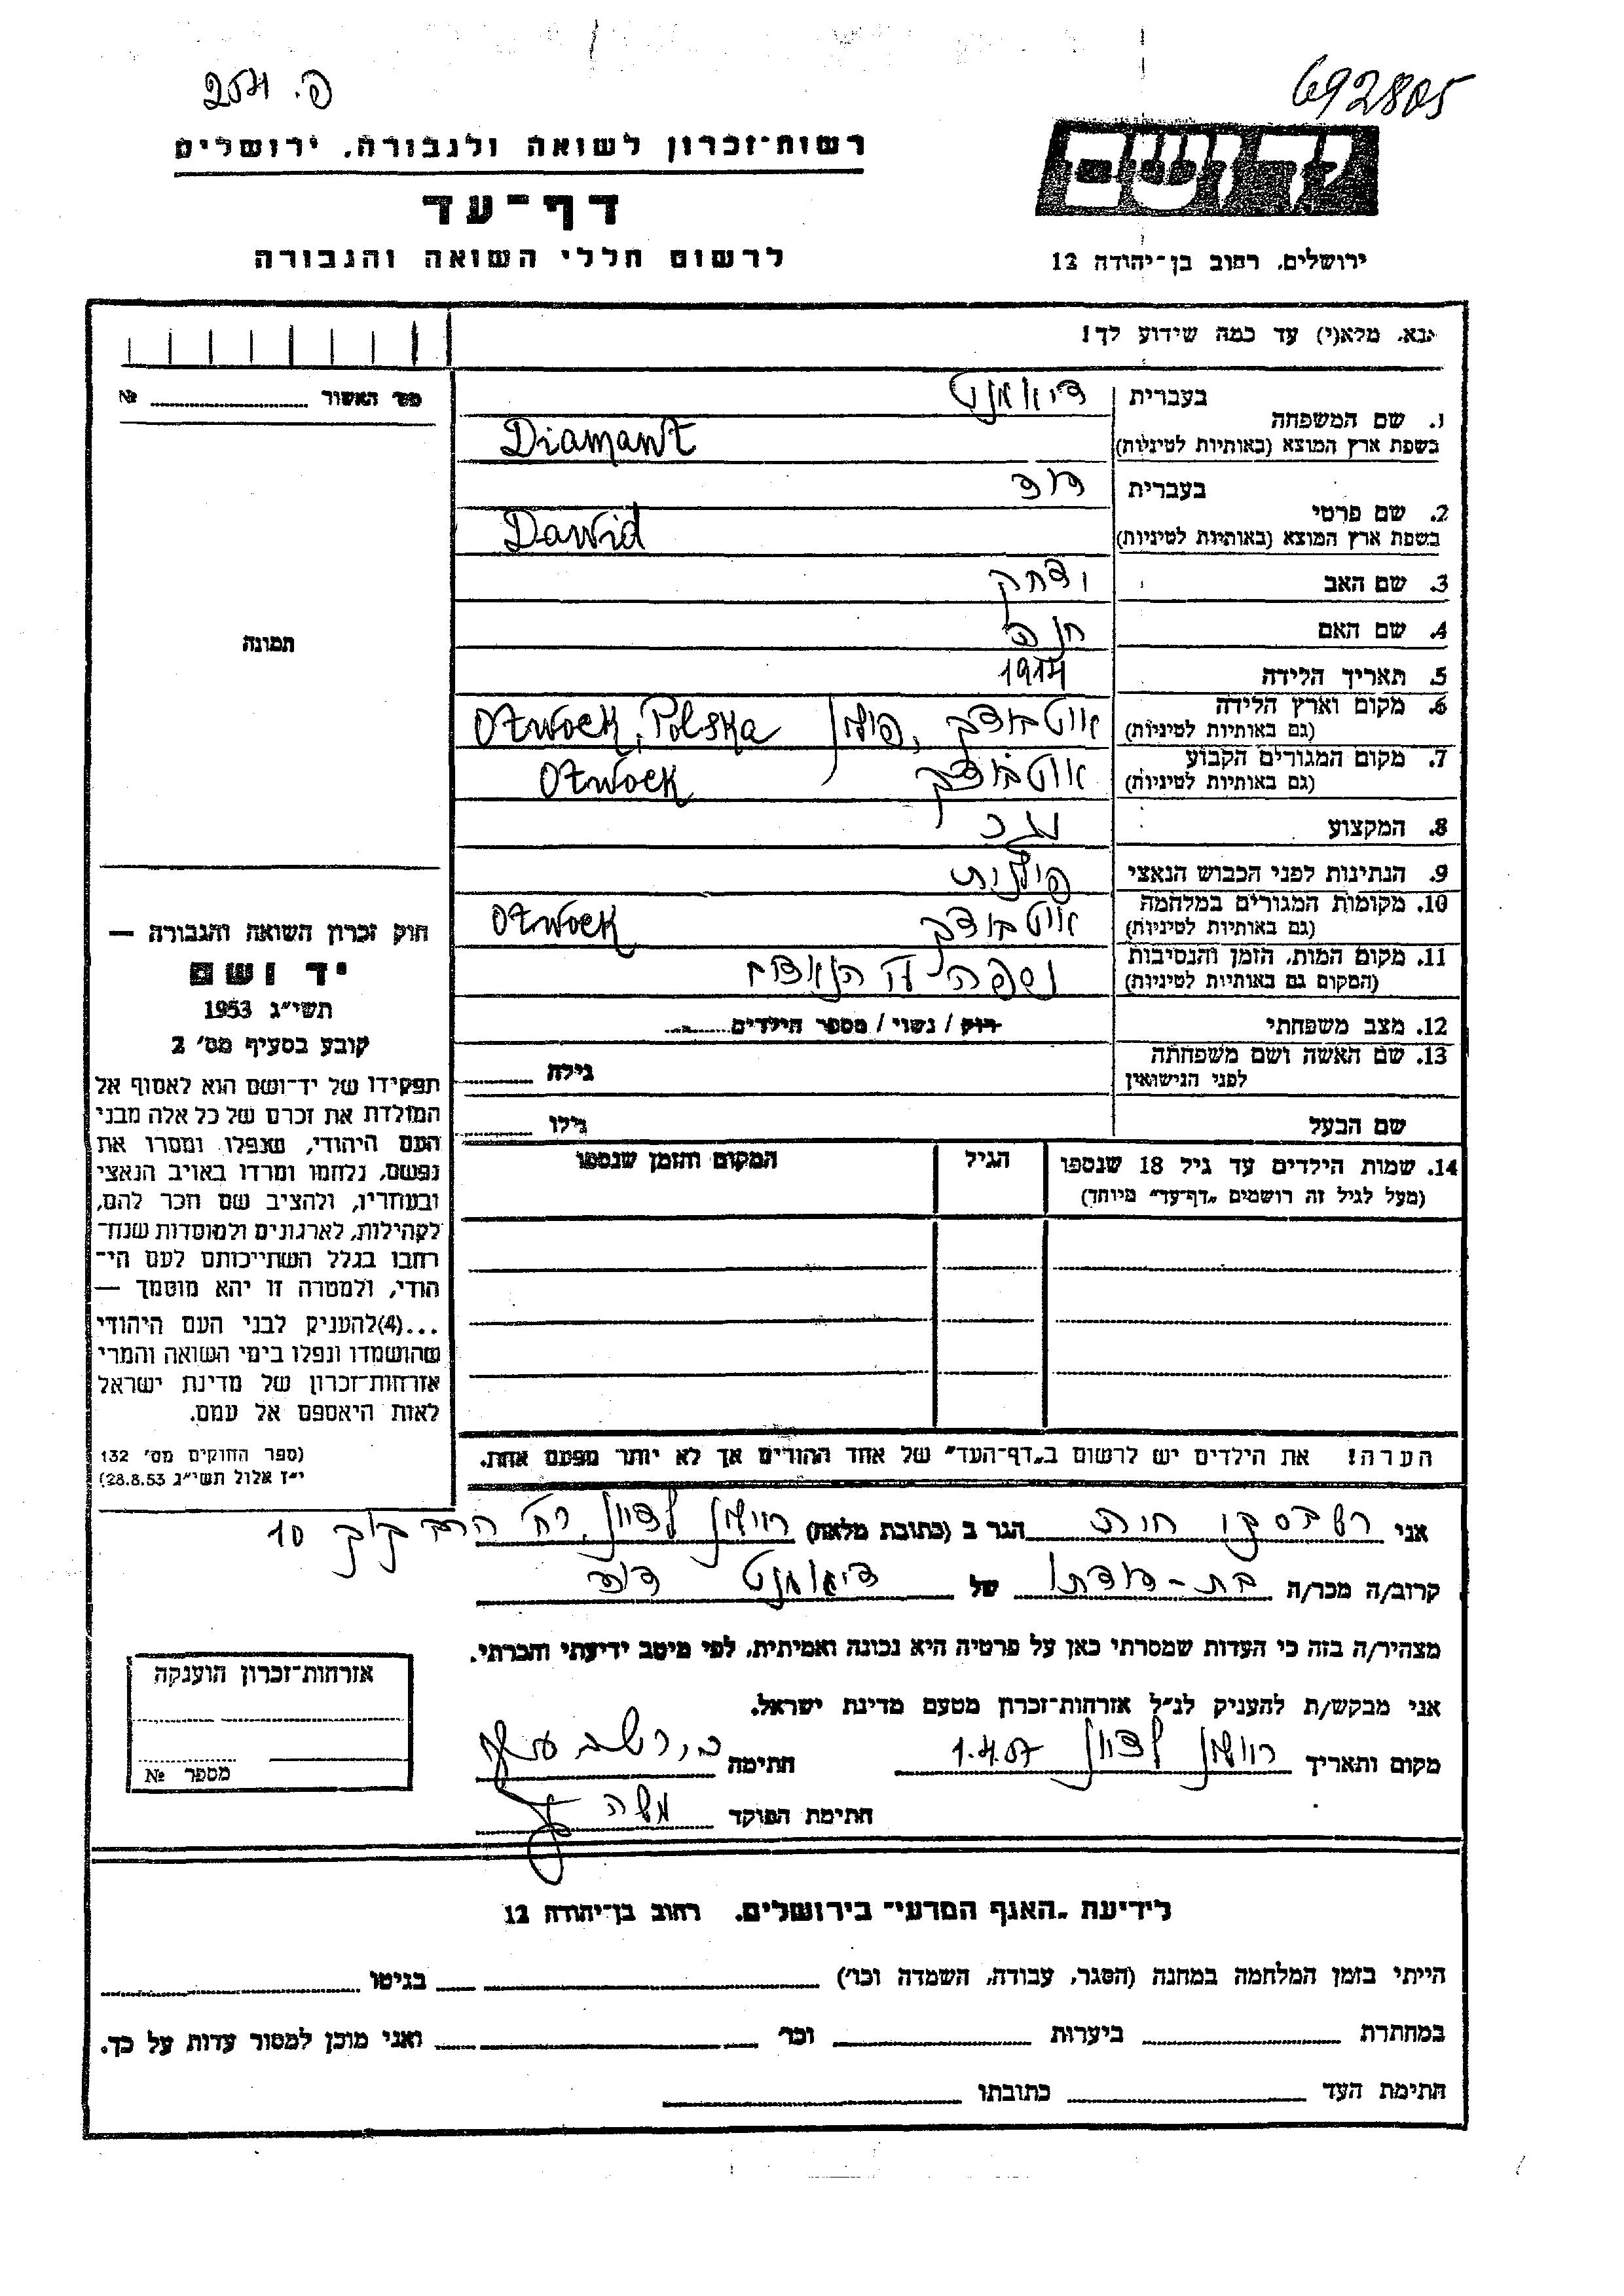 692805
פ.
ידושם
רשות־זכרון לשואה ולגבורה, ירושלים
דף־עד
לרשום חללי השואה והגבורה
ירושלים, רחוב בן־יהודה 12
נא מלא(י) עד כמה שידוע לך!
מס׳ האשור № ........
1. שם המשפחה
בעברית דיאמנט
בשפת ארץ המוצא (באותיות לטיניות) Diamant
2. שם פרטי
בעברית דוד
בשפת ארץ המוצא (באותיות לטיניות) Dawid
3. שם האב יצחק
4. שם האם חנה
5. תאריך הלידה 1914
6. מקום וארץ הלידה (גם באותיות לטיניות) אוטבוצק, פולין Otwock, Polska
7. מקום המגורים הקבוע (גם באותיות לטיניות) אוטבוצק Otwock
8. המקצוע
9. הנתינות לפני הכבוש הנאצי פולנית
10. מקומות המגורים במלחמה (גם באותיות לטיניות) אוטבוצק Otwock
11. מקום המות, הזמן והנסיבות (המקום גם באותיות לטיניות) נספה ע״י הנאצים
12. מצב משפחתי רוק / נשוי / מספר הילדים........
13. שם האשה ושם משפחתה לפני הנישואין גילה ........
שם הבעל גילו ........
14. שמות הילדים עד גיל 18 שנספו
(מעל לגיל זה רושמים „דף־עד״ מיוחד)
הגיל
המקום והזמן שנספו
הערה! את הילדים יש לרשום ב„דף־העד״ של אחד ההורים אך לא יותר מפעם אחת.
תמונה
חוק זכרון השואה והגבורה —
יד ושם
תשי״ג 1953
קובע בסעיף מס׳ 2
תפקידו של יד־ושם הוא לאסוף אל
המולדת את זכרם של כל אלה מבני
העם היהודי, שנפלו ומסרו את
נפשם, נלחמו ומרדו באויב הנאצי
ובעוזריו, ולהציב שם וזכר להם,
לקהילות, לארגונים ולמוסדות שנח־
רחבו בגלל השתייכותם לעם הי־
הודי, ולמטרה זו יהא מוסמך —
...(4)להעניק לבני העם היהודי
שהושמדו ונפלו בימי השואה והמרי
אזרחות־זכרון של מדינת ישראל
לאות היאספם אל עמם.
(ספר החוקים מס׳ 132
י״ז אלול תשי״ג 28.8.53)
אני חות הגר ב (כתובת מלאה) ראשון לציון, רח׳ הרב קוק 10
קרוב/ה מכר/ה בת-דודתו של דיאמנט דוד
מצהיר/ה בזה כי העדות שמסרתי כאן על פרטיה היא נכונה ואמיתית, לפי מיטב ידיעתי והכרתי.
אני מבקש/ת להעניק לנ״ל אזרחות־זכרון מטעם מדינת ישראל.
מקום ותאריך ראשון לציון 1.4.57 חתימה
חתימת הפוקד משה
אזרחות־זכרון הוענקה
מספר №
לידיעת „האגף המדעי״ בירושלים, רחוב בן־יהודה 12
הייתי בזמן המלחמה במחנה (הסגר, עבודה, השמדה וכו׳) ........ בגיטו ........
במחתרת ........ ביערות ........ וכו׳ ........ ואני מוכן למסור עדות על כך.
חתימת העד ........ כתובתו ........